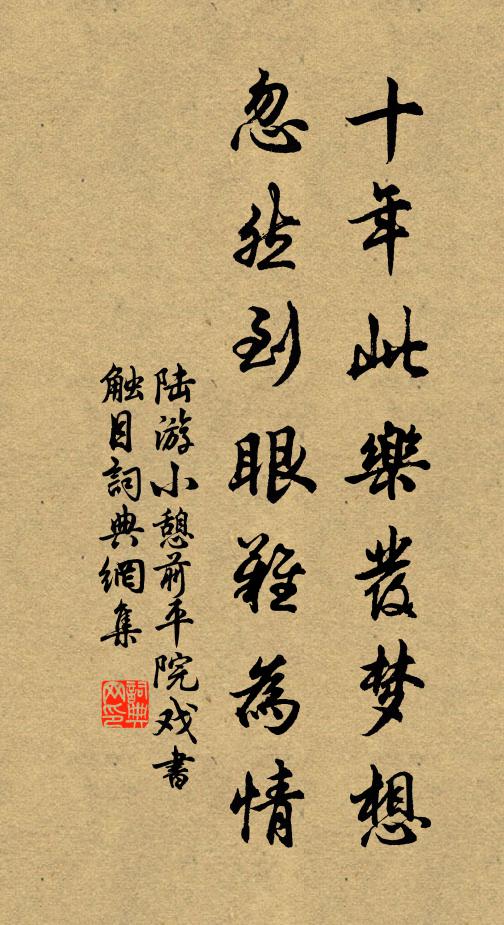 十年此樂發梦想
忽然到眼難為情
陆游小憩前平院戏書
触目詞典網集
詞典网印